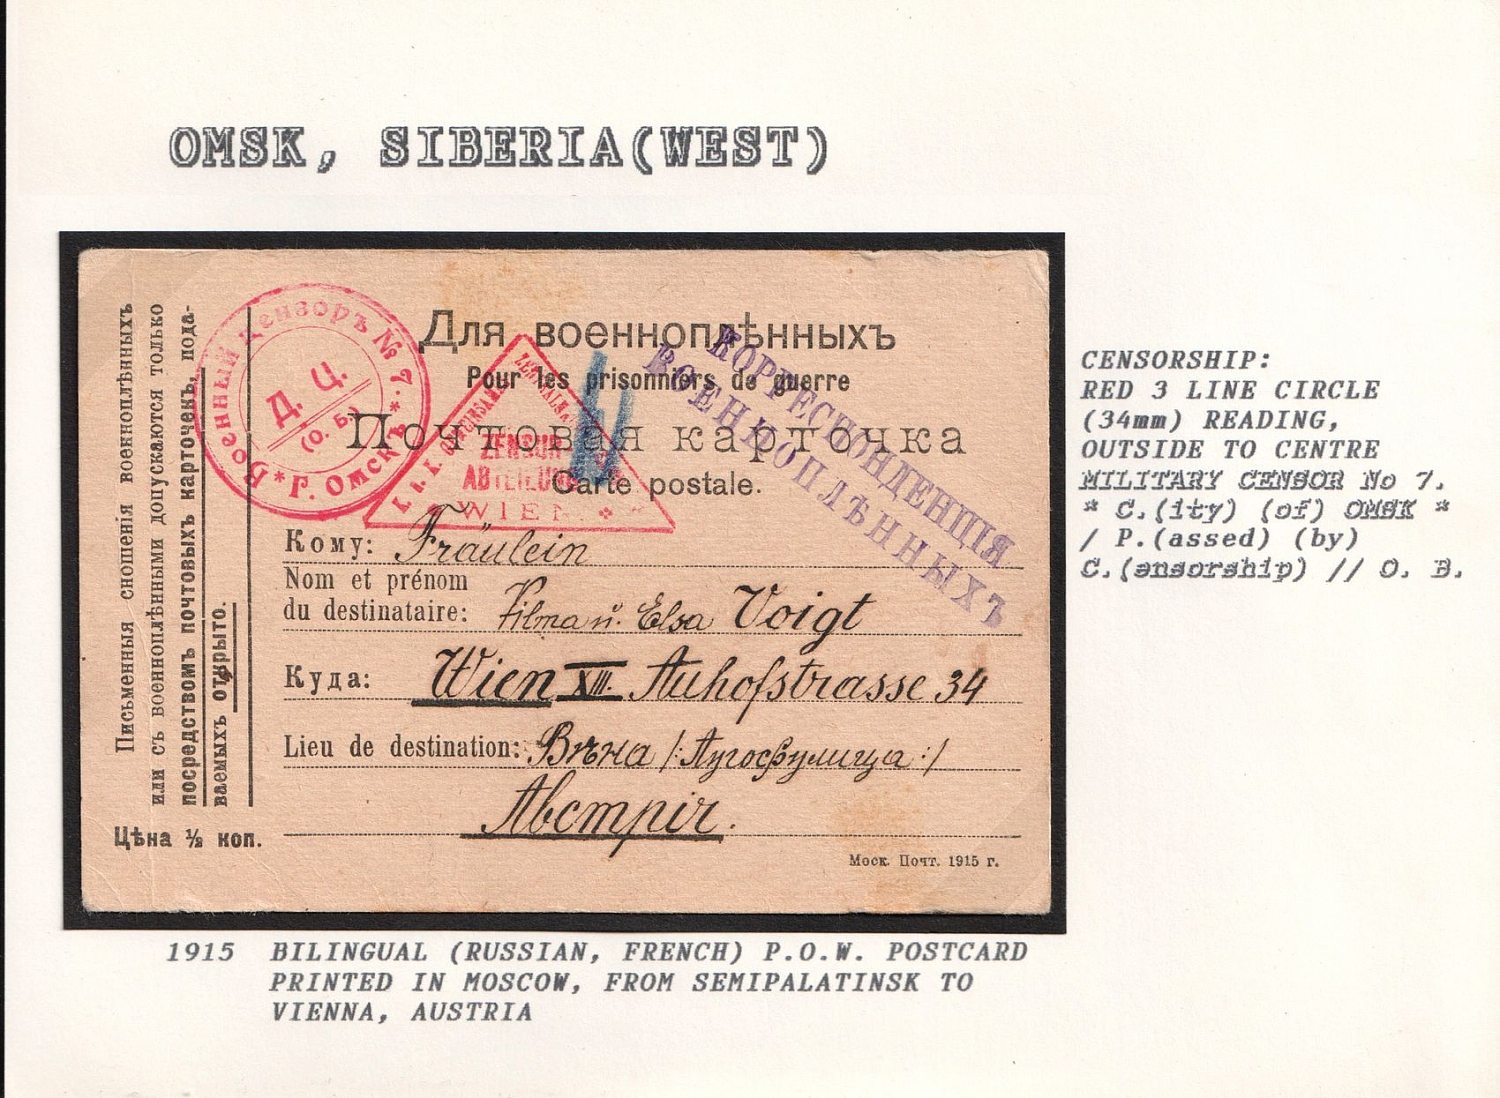 OMSK, SIBERIA(WEST)
Письменныя сношенія военноплѣнныхъ
или съ военноплѣнными допускаются только
посредствомъ почтовыхъ карточекъ, пода-
ваемыхъ открыто.
Цѣна ½ коп.
Военный Цензоръ № 7.
* Г. Омскъ *
Д. Ц.
(О. Б.)
Для военноплѣнныхъ
Pour les prisonniers de guerre
Почтовая карточка
Carte postale.
ZENSUR
ABTEILUNG
WIEN
КОРРЕСПОНДЕНЦІЯ
ВОЕННОПЛѢННЫХЪ
Кому: Fräulein
Nom et prénom
du destinataire: Vilma u. Elsa Voigt
Куда: Wien XIII. Auhofstrasse 34
Lieu de destination: Вѣна /: Аугофулица :/
Австрія.
Моск. Почт. 1915 г.
CENSORSHIP:
RED 3 LINE CIRCLE
(34mm) READING,
OUTSIDE TO CENTRE
MILITARY CENSOR No 7.
* C.(ity) (of) OMSK *
/ P.(assed) (by)
C.(ensorship) // O. B.
1915 BILINGUAL (RUSSIAN, FRENCH) P.O.W. POSTCARD
PRINTED IN MOSCOW, FROM SEMIPALATINSK TO
VIENNA, AUSTRIA